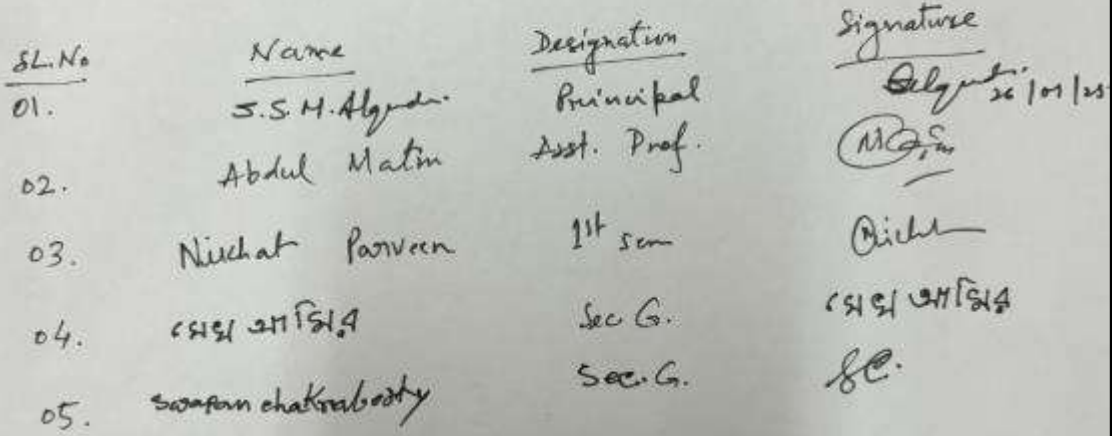 SL.No Name Designation Signature
01. S.S.M. Principal 26/01/25
02. Abdul Matin Asst. Prof.
03. Nuchat Parveen 1st sem
04. সেখ আমির Sec G. সেখ আমির
05. swapan chakraborty Sec. G. SC.